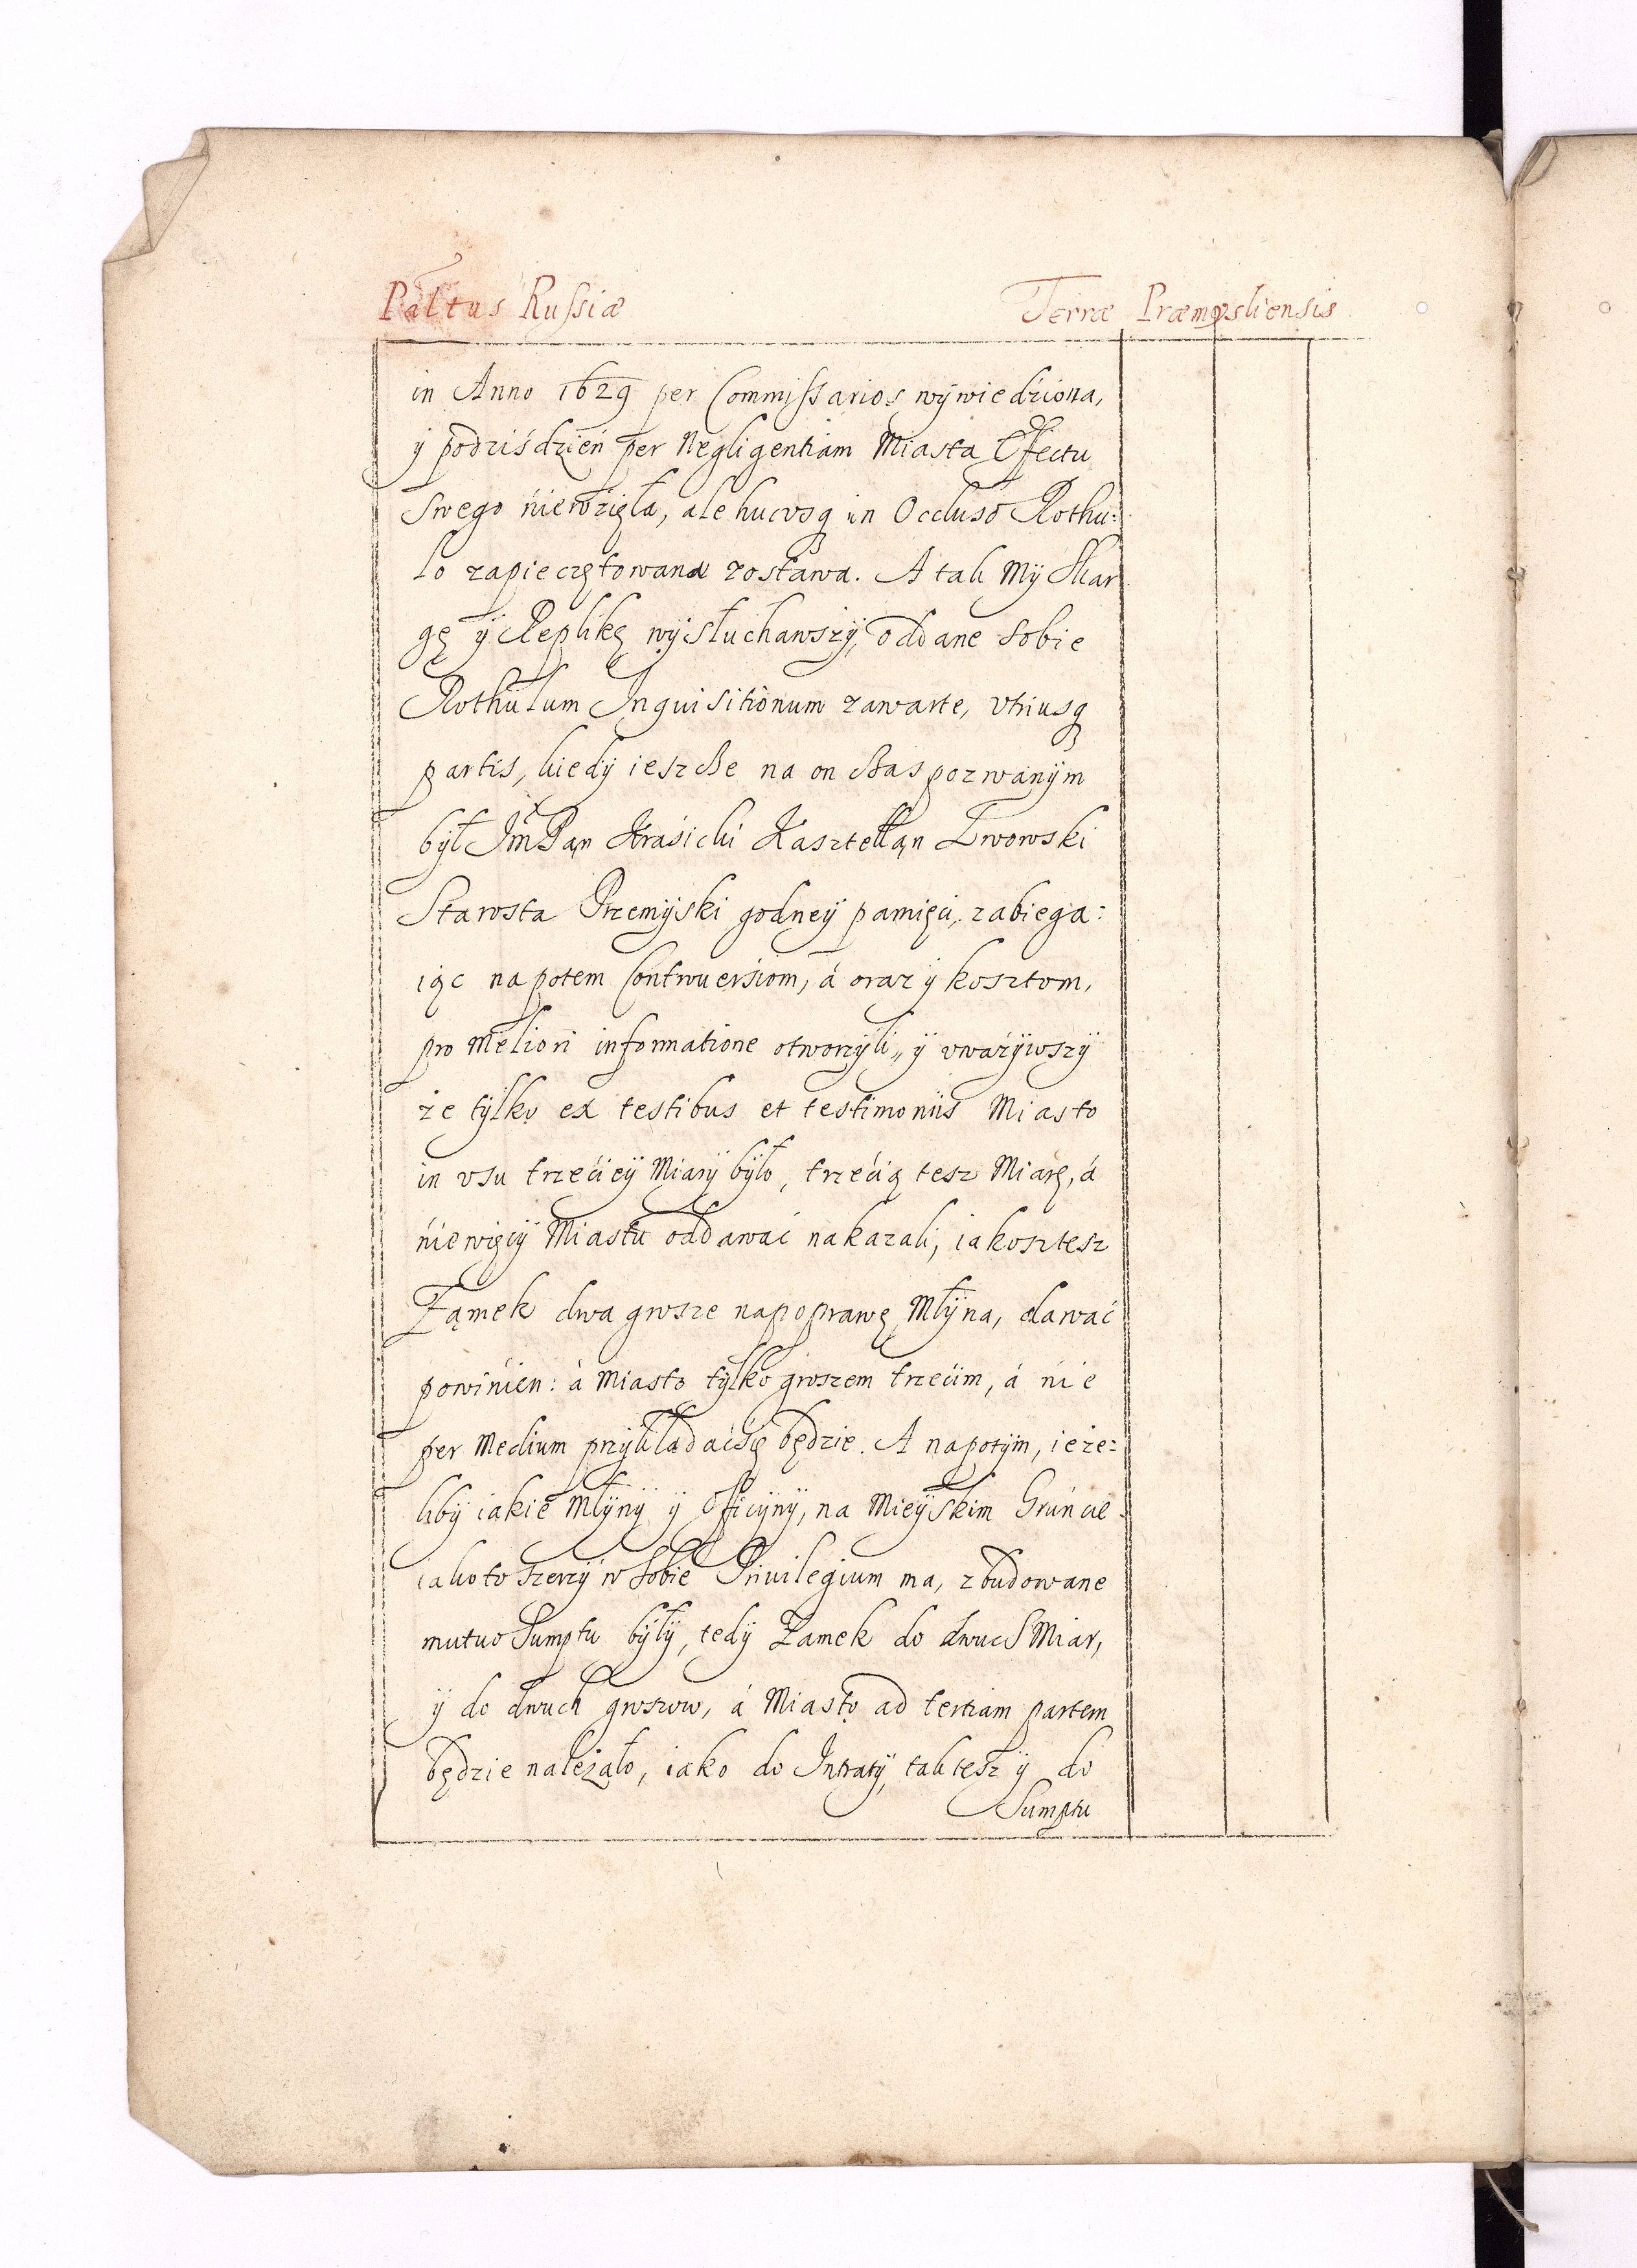 Pałtus Russiæ Terræ Præmysliensis
in Anno 1629 per Commissarios wÿwiedźiona,
ÿ podziśdzień per Negligentiam Miasta Effectu
swego niewźięła, ale hucusq in Occluso Rothu:
lo zapieczętowana zostawa. A tak Mÿ Skar
gę ÿ Replikę wÿsłuchawszÿ, oddane sobie
Rothulum Inquisitionum zawarte, vtriusq
partis, kiedÿ ieszcze na on czas pozwanÿm
bÿł Jm Pąn Kraśicki Kasztelląn Lwowski
Starosta Przemÿski godneÿ pamięci, zabiega:
iąc napotem Controuersiom, á oraz ÿ kosztom,
pro meliori informatione otworzÿli, ÿ vważÿwszÿ
że tÿlko ex testibus et testimoniis Miasto
in vsu trzećieÿ Miarÿ bÿło, trzećią tesz Miarę, á
niewięcÿ Miastu oddawać nakazali, iakosztesz
Ząmek dwa grosze napoprawę Młÿna, dawać
powinien: á Miasto tÿlko groszem trzećim, á nie
per Medium przÿkładaćsię będzie. A napotÿm, ieże:
libÿ iakie Młÿnÿ ÿ Officÿnÿ, na Mieÿskim Gruńcie
iakoto szerzÿ w sobie Priuilegium ma, zbudowane
mutuo Sumptu bÿłÿ, tedÿ Zamek do dwuch Miar,
ÿ do dwuch groszow, á Miasto ad tertiam partem
będzie należało, iako do Intratÿ, taktesz ÿ do
Sumptu